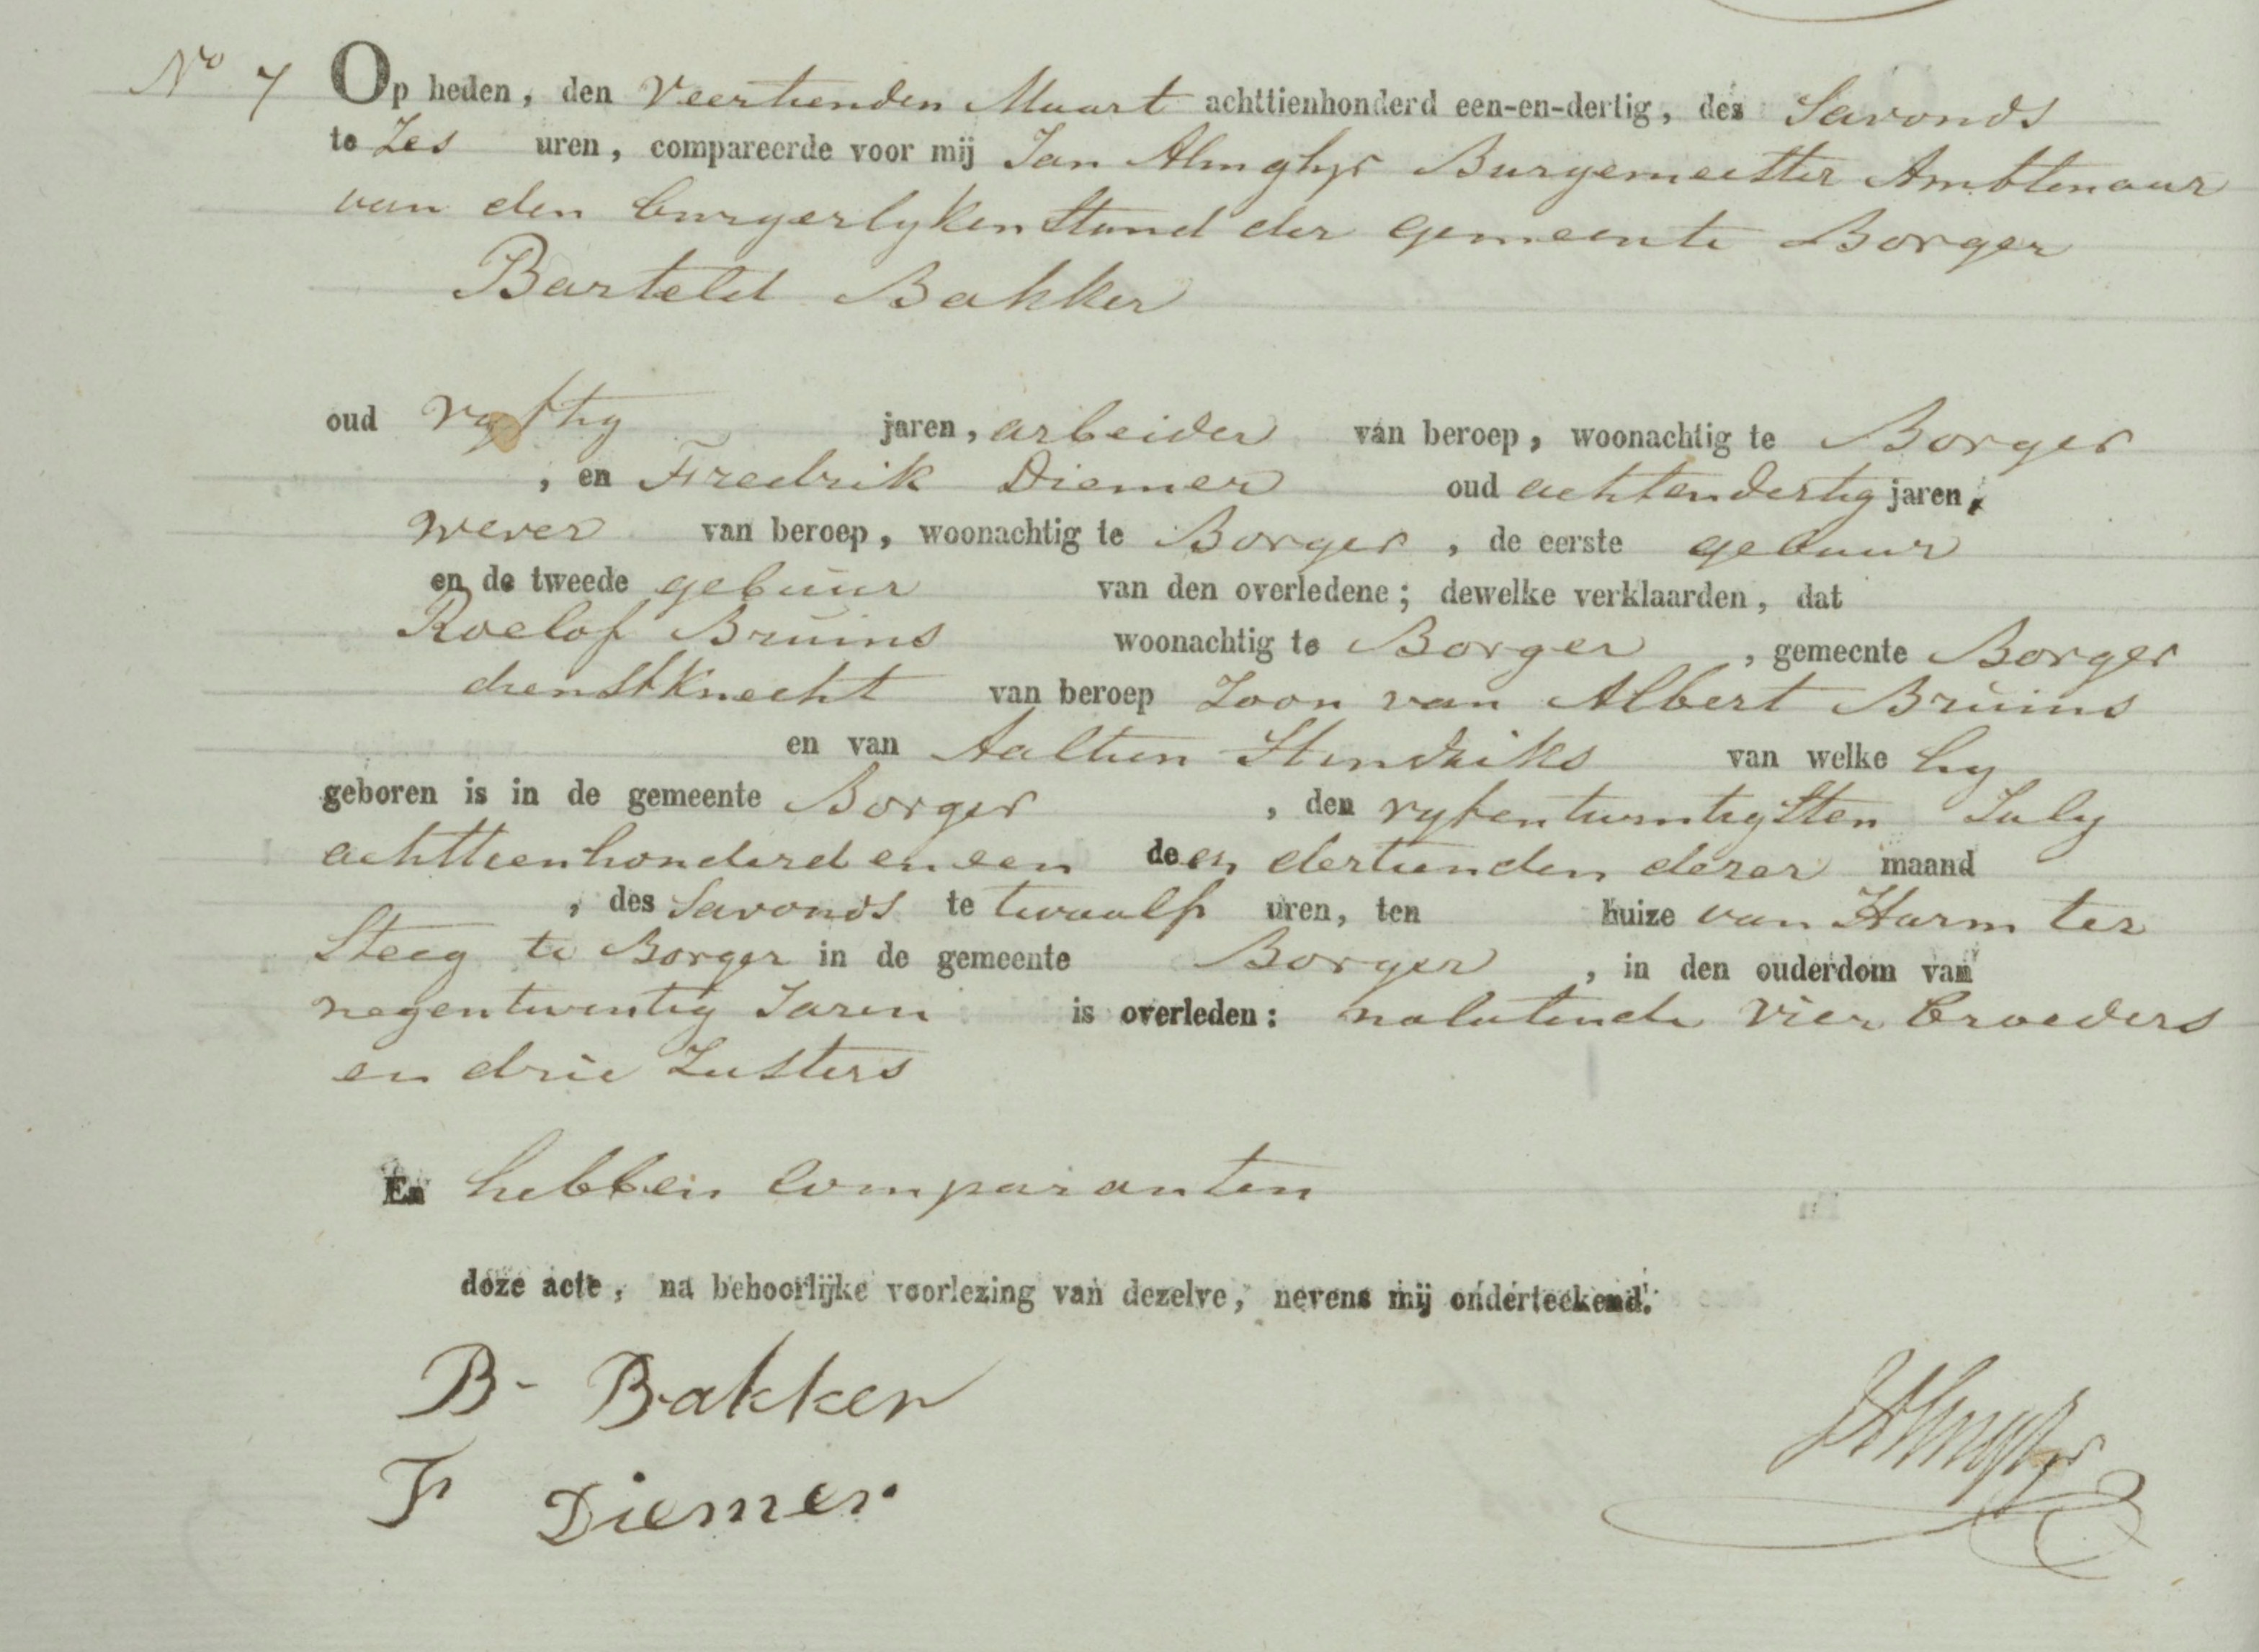 No 7 Op heden, den Veertienden Maart achttienhonderd een-en-dertig, des Savonds
te Zes uren, compareerde voor mij Jan Alinghÿr Burgemeester Ambtenaar
van den burgerlyken Stand der gemeente Borger
Barteld Bakker
oud vyftig jaren, arbeider van beroep, woonachtig te Borger
, en Fredrik Diemer oud achtendertig jaren,
wever van beroep, woonachtig te Borger, de eerste gebuur
en de tweede gebuur van den overledene; dewelke verklaarden, dat
Roelof Bruins woonachtig te Borger, gemeente Borger
dienstknecht van beroep Zoon van Albert Bruins
en van Aaltien Hendriks van welke hy
geboren is in de gemeente Borger, den vyfentwintigsten July
achttienhonderd en een de en dertienden dezer maand
, des Savonds te twaalf uren, ten huize van Harm ter
Steeg te Borger in de gemeente Borger, in den ouderdom van
negentwintig Jaren is overleden: nalatende vier broeders
en drie Zusters
En hebben Comparanten
deze acte, na behoorlijke voorlezing van dezelve, nevens mij onderteekend.
B- Bakker
F Diemer